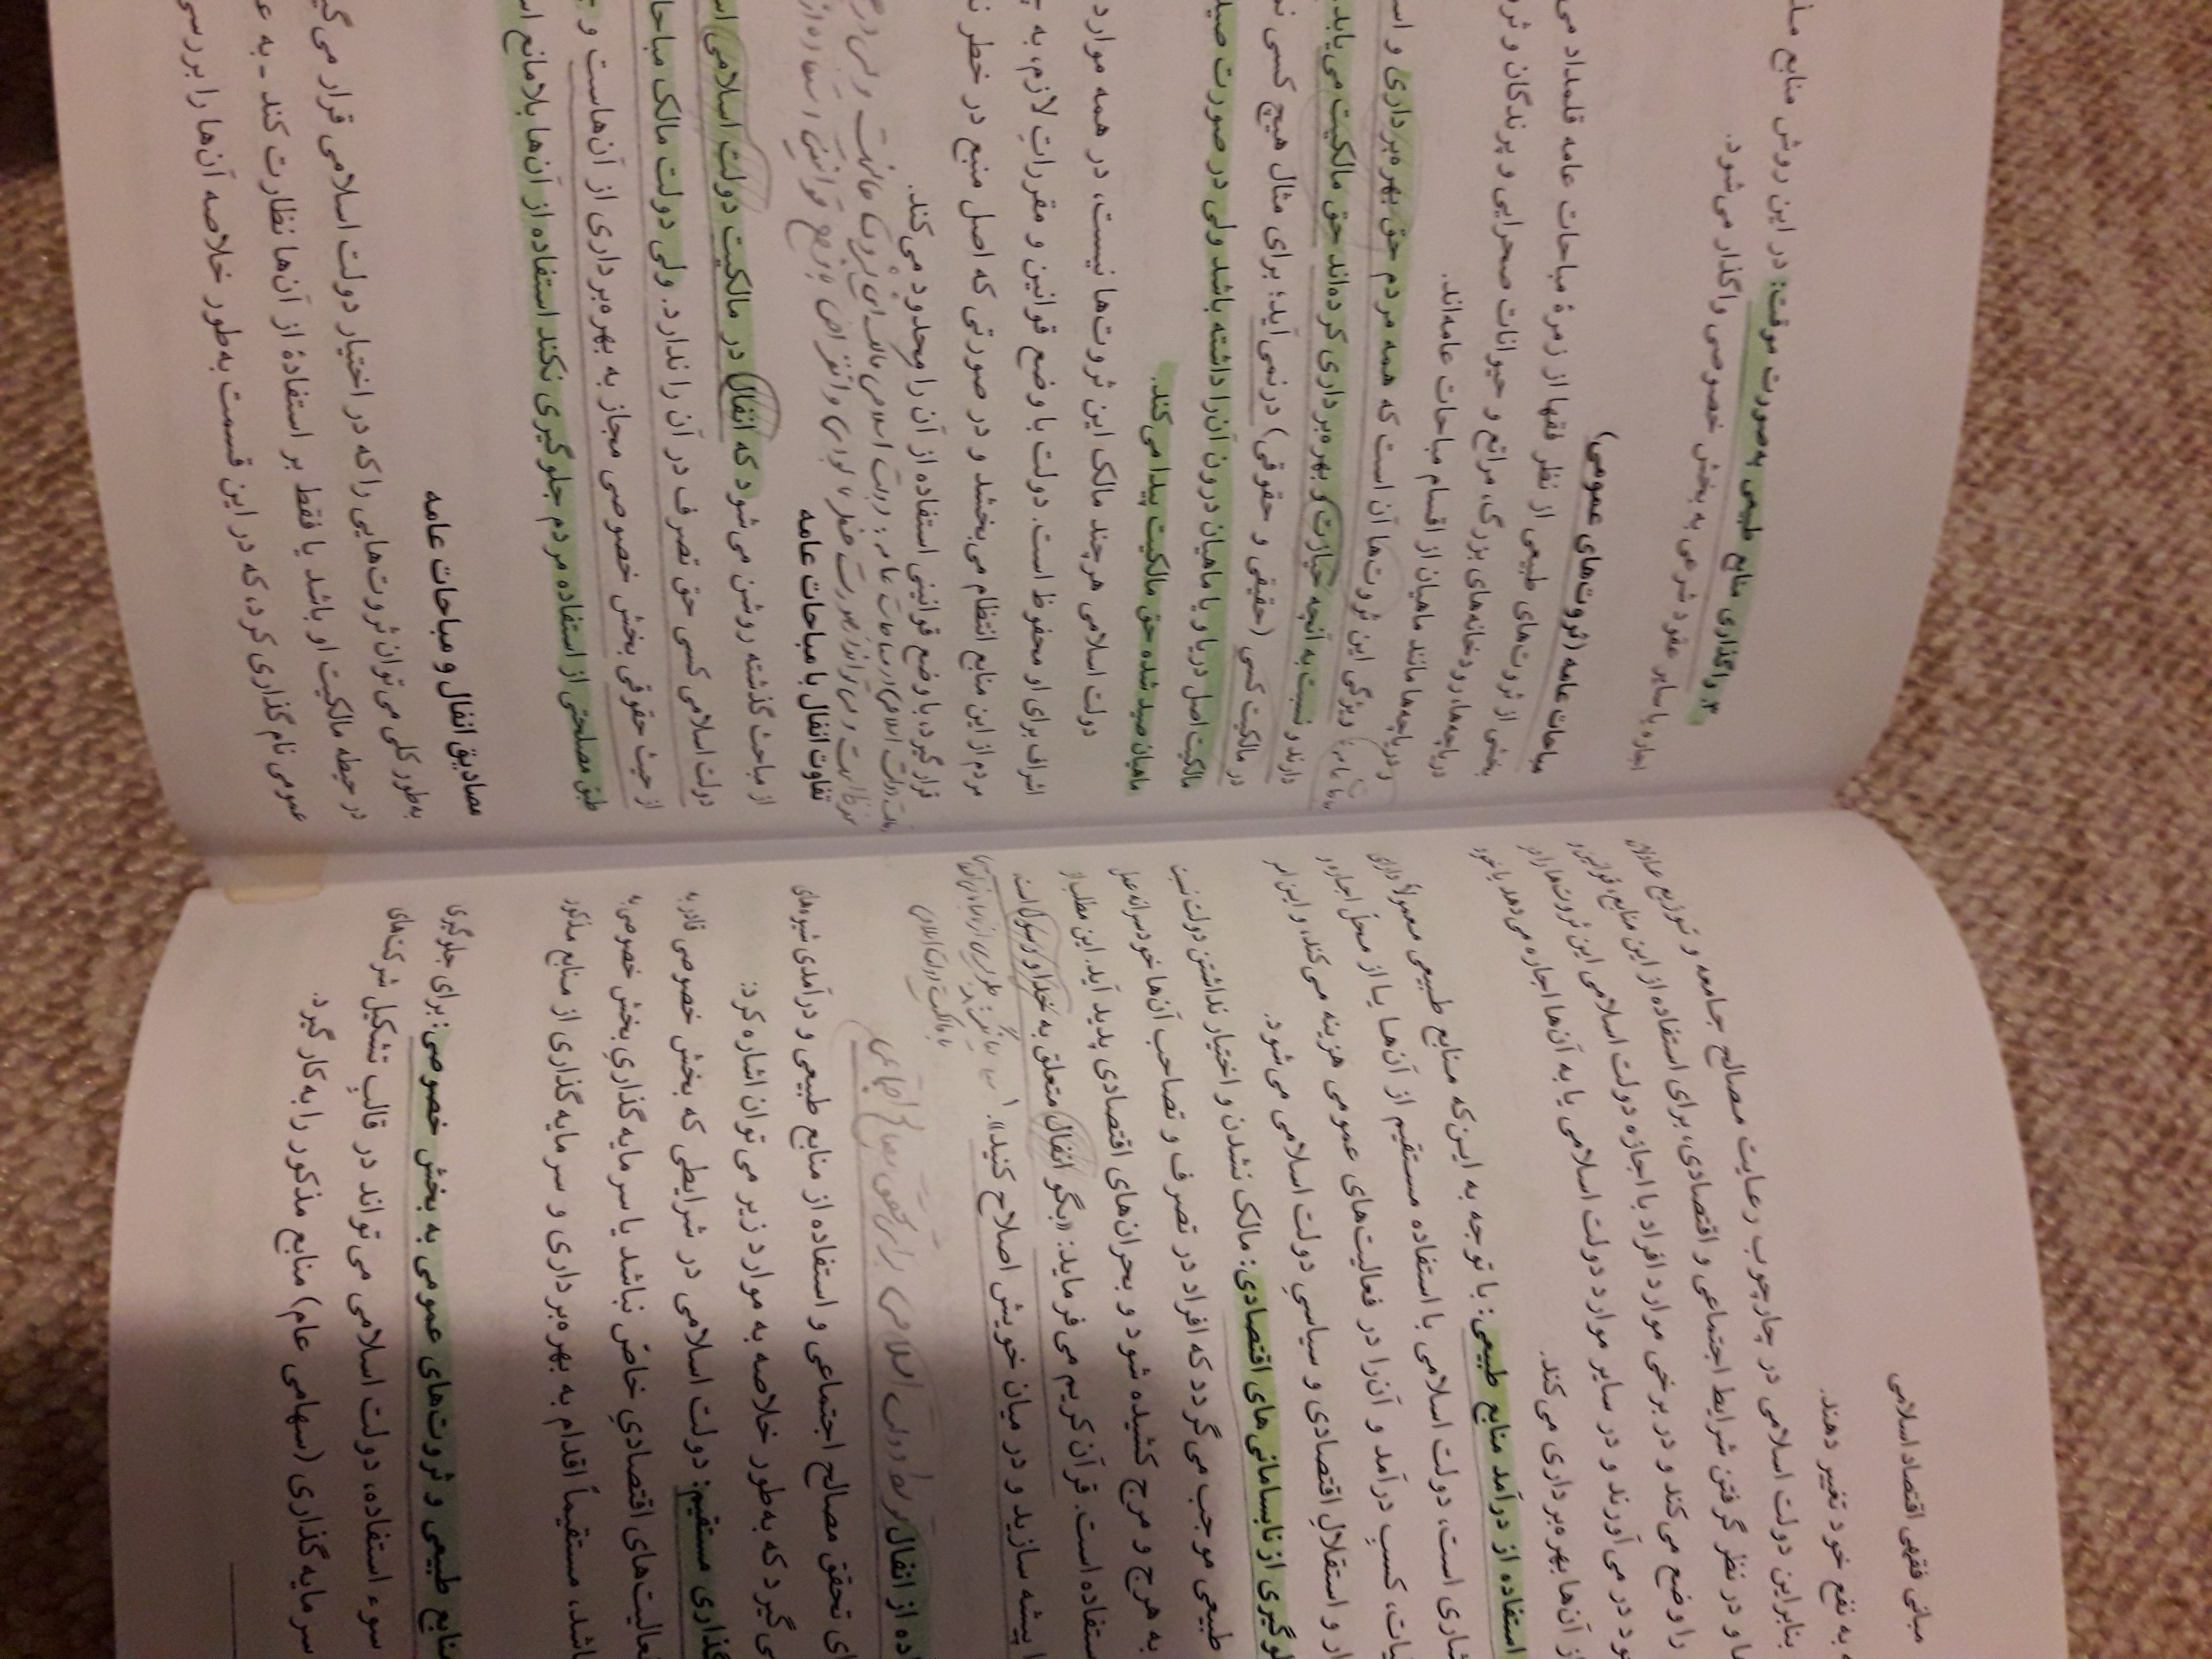 مبانی فقهی اقتصاد اسلامی
به نفع خود تغییر دهند.
بنابراین دولت اسلامی در چارچوب رعایت مصالح جامعه و توزیع عادلانه
و در نظر گرفتن شرایط اجتماعی و اقتصادی، برای استفاده از این منابع، قوانین و
را وضع می‌کند و در برخی موارد افراد با اجازه دولت اسلامی این ثروت‌ها را در
خود در می‌آورند و در سایر موارد دولت اسلامی یا به آن‌ها اجازه می‌دهد یا خود
از آن‌ها بهره‌برداری می‌کند.
استفاده از درآمد منابع طبیعی: با توجه به این‌که منابع طبیعی معمولاً دارای
است، دولت اسلامی با استفاده مستقیم از آن‌ها یا از محل اجاره و
کسب درآمد و آن را در فعالیت‌های عمومی هزینه می‌کند، و این امر
و استقلال اقتصادی و سیاسی دولت اسلامی می‌شود.
جلوگیری از نابسامانی‌های اقتصادی: مالک نشدن و اختیار نداشتن دولت نسبت
طبیعی موجب می‌گردد که افراد در تصرف و تصاحب آن‌ها خودسرانه عمل
به هرج و مرج کشیده شود و بحران‌های اقتصادی پدید آید. این مطلب از
استفاده است. قرآن کریم می‌فرماید: «بگو انفال متعلق به خدا و رسول است،
پیشه سازید و در میان خویش اصلاح کنید».۱
از انفال توسط دولت اسلامی برای تحقق مصالح اجتماعی
تحقق مصالح اجتماعی و استفاده از منابع طبیعی و درآمدی شیوه‌های
می‌گیرد که به‌طور خلاصه به موارد زیر می‌توان اشاره کرد:
مستقیم: دولت اسلامی در شرایطی که بخش خصوصی قادر به
فعالیت‌های اقتصادی خاصّ نباشد یا سرمایه‌گذاری بخش خصوصی به
باشد، مستقیماً اقدام به بهره‌برداری و سرمایه‌گذاری از منابع مذکور
منابع طبیعی و ثروت‌های عمومی به بخش خصوصی: برای جلوگیری
سوء استفاده، دولت اسلامی می‌تواند در قالب تشکیل شرکت‌های
سرمایه‌گذاری (سهامی عام) منابع مذکور را به کار گیرد.
۳. واگذاری منابع طبیعی به‌صورت موقت: در این روش منابع
اجاره یا سایر عقود شرعی به بخش خصوصی واگذار می‌شود.
مباحات عامه (ثروت‌های عمومی)
بخشی از ثروت‌های طبیعی از نظر فقها از زمرهٔ مباحات عامه قلمداد می
دریاچه‌ها، رودخانه‌های بزرگ، مراتع و حیوانات صحرایی و پرندگان و
و دریاچه‌ها مانند ماهیان از اقسام مباحات عامه‌اند.
ویژگی این ثروت‌ها آن است که همه مردم حق بهره‌برداری و
دارند و نسبت به آنچه حیازت و بهره‌برداری کرده‌اند حق مالکیت می‌یابد
در مالکیت کسی (حقیقی و حقوقی) در نمی‌آید؛ برای مثال هیچ کسی
مالکیت اصل دریا و یا ماهیان درون آن را داشته باشد ولی در صورت صید
ماهیان صید شده حق مالکیت پیدا می‌کند.
دولت اسلامی هرچند مالک این ثروت‌ها نیست، در همه موارد
اشراف برای او محفوظ است. دولت با وضع قوانین و مقررات لازم، به
مردم از این منابع انتظام می‌بخشد و در صورتی که اصل منبع در خطر
قرار گیرد، با وضع قوانینی استفاده از آن را محدود می‌کند.
تفاوت انفال با مباحات عامه
از مباحث گذشته روشن می‌شود که انفال در مالکیت دولت اسلامی
دولت اسلامی کسی حق تصرف در آن را ندارد. ولی دولت مالک مباحات
از حیث حقوقی بخش خصوصی مجاز به بهره‌برداری از آن‌هاست و
طبق مصلحتی از استفاده مردم جلوگیری نکند استفاده از آن‌ها بلامانع
مصادیق انفال و مباحات عامه
به‌طور کلی می‌توان ثروت‌هایی را که در اختیار دولت اسلامی قرار می‌
در حیطه مالکیت او باشد یا فقط بر استفادهٔ از آن‌ها نظارت کند ـ به
عمومی نام گذاری کرد، که در این قسمت به‌طور خلاصه آن‌ها را بررسی